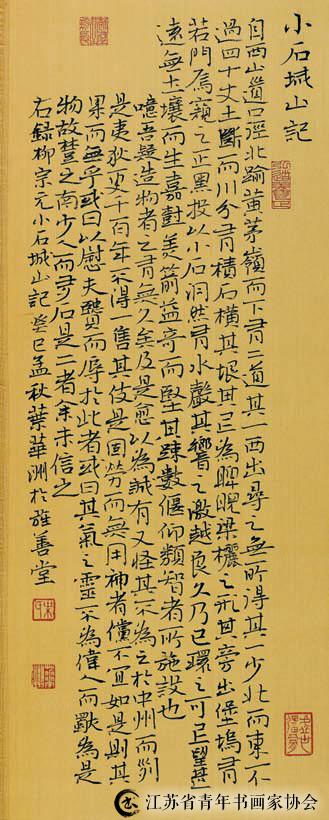 小石城山記
自西山道口徑北踰黃茅嶺而下有二道其一西出尋之無所得其一少北而東不
過四十丈土斷而川分有積石橫其垠其上為睥睨梁欐之形其旁出堡塢有
若門焉窺之正黑投以小石洞然有水聲其響之激越良久乃已環之可上望甚
遠無土壤而生嘉樹美箭益奇而堅其疏數偃仰類智者所施設也
噫吾疑造物者之有無久矣及是愈以為誠有又怪其不為之於中州而列
是夷狄更千百年不得一售其伎是固勞而無用神者儻不宜如是則其
果無乎或曰以慰夫賢而辱於此者或曰其氣之靈不為偉人而獨為是
物故楚之南少人而多石是二者余未信之
右錄柳宗元小石城山記癸巳孟秋葉華洲於雅善堂
江苏省青年书画家协会